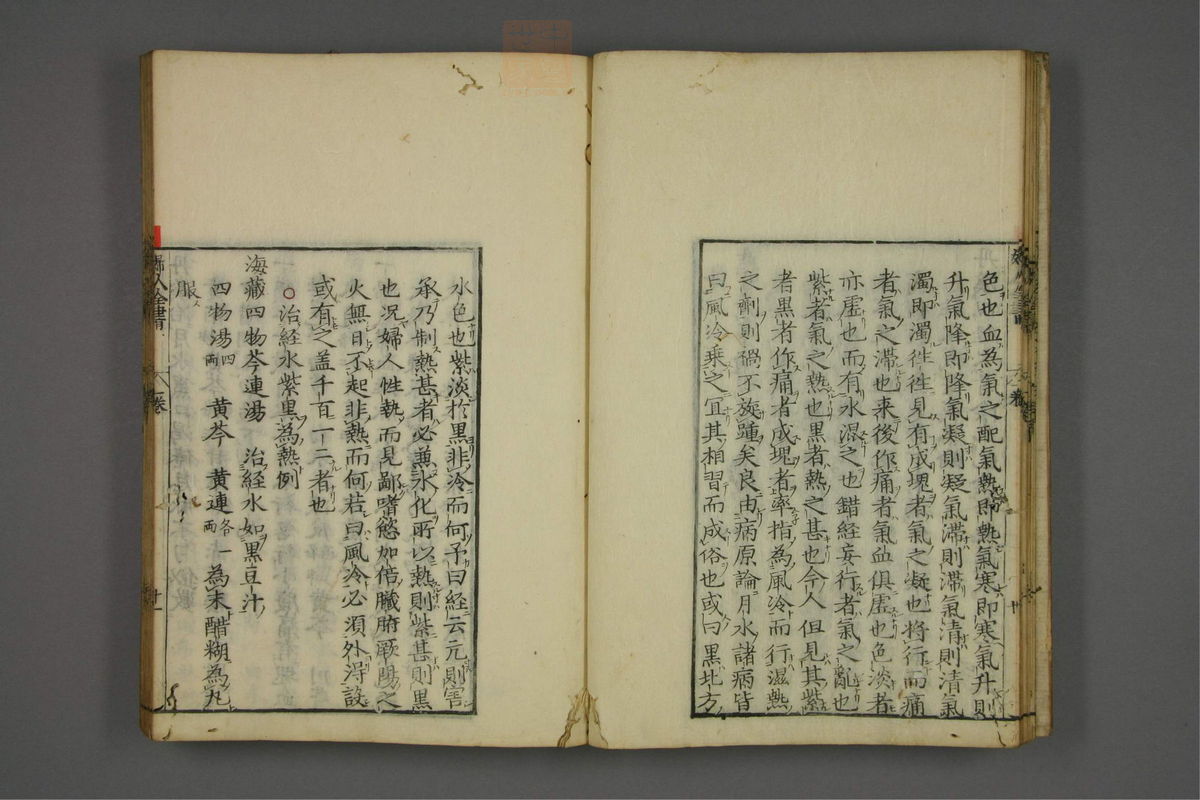 色也血為氣之配氣熱即熱氣寒即寒氣升則
升氣降即降氣凝則凝氣滞則滞氣清則清氣
濁即濁徃徃見有成塊者氣之凝也将行而痛
者氣之滞也来後作痛者氣血俱虚也色淡者
亦虚也而有水混之也錯経妄行者氣之亂也
紫者氣之熱也黒者熱之甚也今人但見其紫
者黒者作痛者成塊者率指為風冷而行温熱
之劑則禍不旋踵矣良由病原論月水諸病皆
曰風冷乗之宜其相習而成俗也或曰黒北方
水色也紫淡於黒非冷而何予曰経云亢則害
承乃制熱甚者必兼水化所以熱則紫甚則黒
也况婦人性執而見鄙嗜慾加倍臓腑厥陽之
火無日不起非熱而何若曰風冷必須外淂設
或有之盖千百一二者也
○治経水紫黒為熱例
海藏四物芩連湯 治経水如黒豆汁
四物湯四兩 黄芩 黄連各一兩 為末醋糊為丸
服
婦人全書 卷 廿一
卷 廿